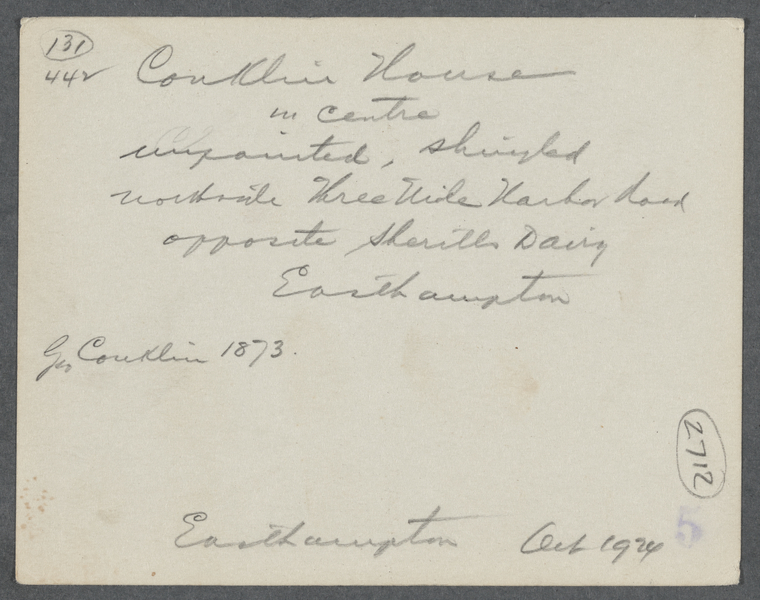 131
442
Conklin House
in centre
unpainted, shingled
northside Three Mile Harbor Road
opposite Sherills Dairy
Easthampton
Geo Conklin 1873.
2712
5
Easthampton Oct 1924